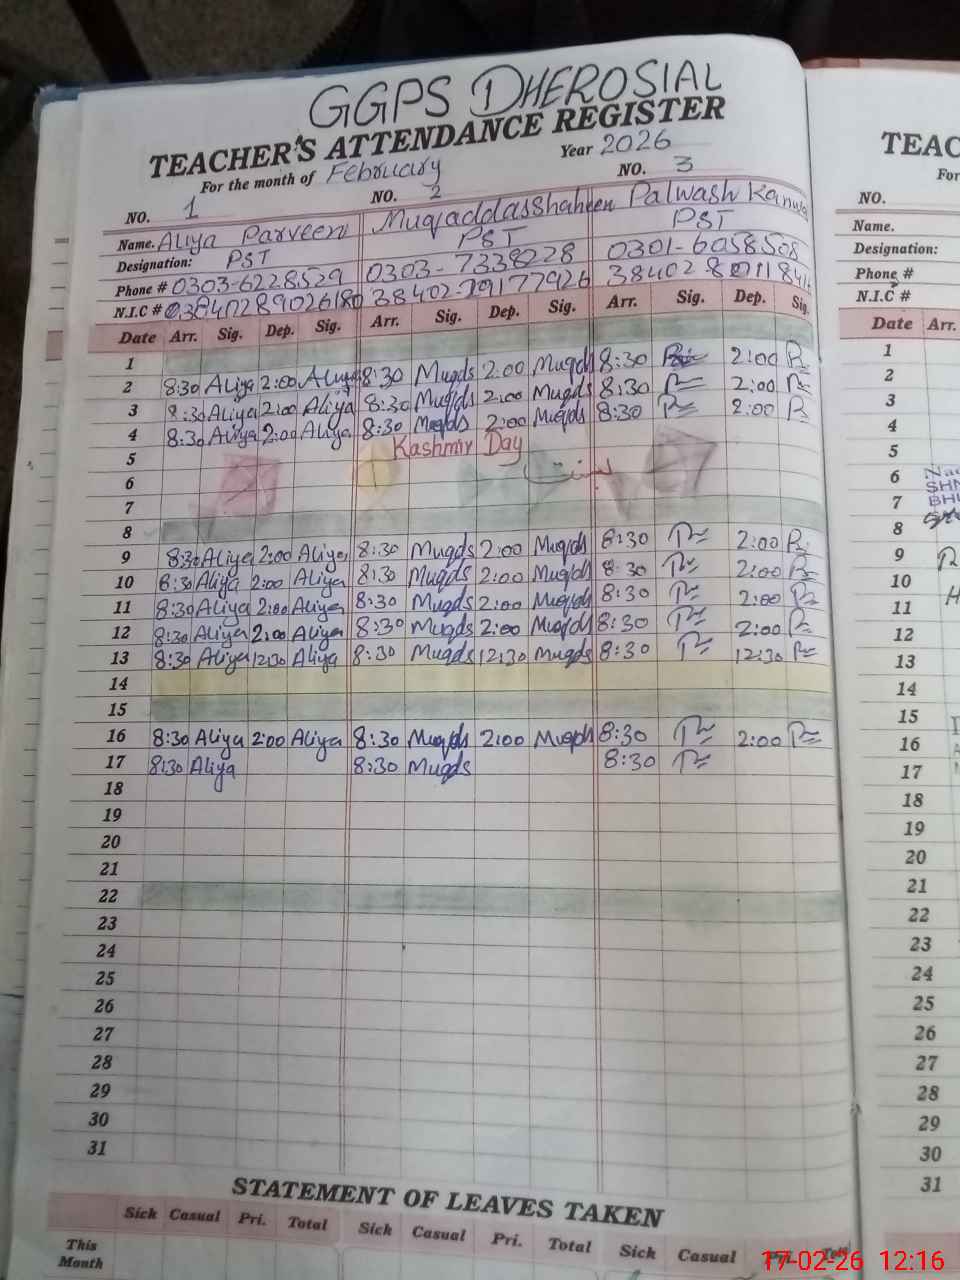 GGPS DHEROSIAL
TEACHER'S ATTENDANCE REGISTER
For the month of February Year 2026
NO. 1 NO. 2 NO. 3
Name. Aliya Parveen Muqaddas Shaheen Palwash Kanwal
Designation: PST PST PST
Phone # 0303-6228529 0303-7338228 0301-6058508
N.I.C #
Date Arr. Sig. Dep. Sig. Arr. Sig. Dep. Sig. Arr. Sig. Dep. Sig.
1
2 8:30 Aliya 2:00 Aliya 8:30 Muqds 2:00 Muqds 8:30 2:00
3 8:30 Aliya 2:00 Aliya 8:30 Muqds 2:00 Muqds 8:30 2:00
4 8:30 Aliya 2:00 Aliya 8:30 Muqds 2:00 Muqds 8:30 2:00
5 Kashmir Day
6 بسنت
7
8
9 8:30 Aliya 2:00 Aliya 8:30 Muqds 2:00 Muqds 8:30 2:00
10 8:30 Aliya 2:00 Aliya 8:30 Muqds 2:00 Muqds 8:30 2:00
11 8:30 Aliya 2:00 Aliya 8:30 Muqds 2:00 Muqds 8:30 2:00
12 8:30 Aliya 2:00 Aliya 8:30 Muqds 2:00 Muqds 8:30 2:00
13 8:30 Aliya 12:30 Aliya 8:30 Muqds 12:30 Muqds 8:30 12:30
14
15
16 8:30 Aliya 2:00 Aliya 8:30 Muqds 2:00 Muqds 8:30 2:00
17 8:30 Aliya 8:30 Muqds 8:30
18
19
20
21
22
23
24
25
26
27
28
29
30
31
STATEMENT OF LEAVES TAKEN
Sick Casual Pri. Total Sick Casual Pri. Total Sick Casual Pri. Total
This Month
TEAC
For
NO.
Name.
Designation:
Phone #
N.I.C #
Date Arr.
1
2
3
4
5
6
7
8
9
10
11
12
13
14
15
16
17
18
19
20
21
22
23
24
25
26
27
28
29
30
31
17-02-26 12:16